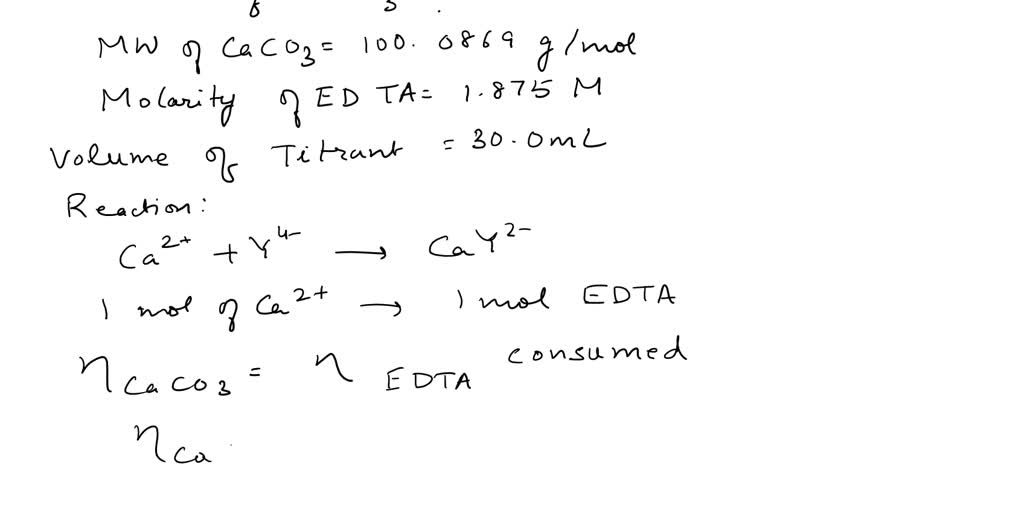 MW of CaCO3 = 100.0869 g/mol
Molarity of EDTA = 1.875 M
Volume of Titrant = 30.0mL
Reaction:
Ca2+ + Y4- → CaY2-
1 mol of Ca2+ → 1 mol EDTA
nCaCO3 = n EDTA consumed
nCa